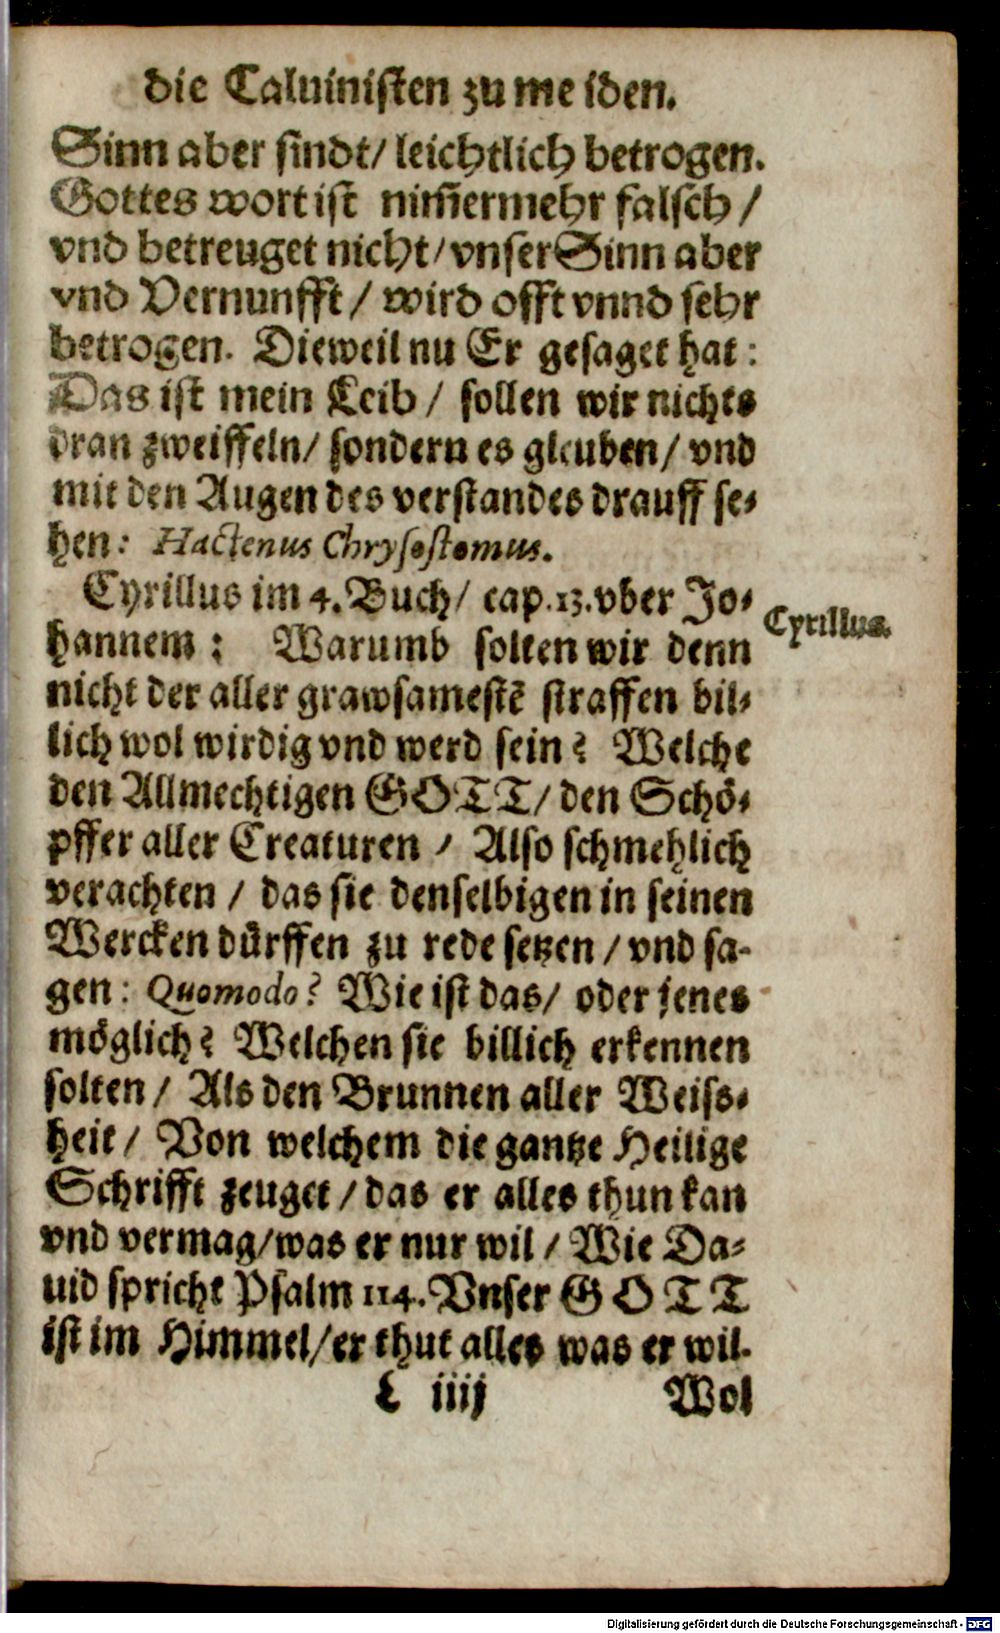 die Caluinisten zu me iden.
Sinn aber sindt/ leichtlich betrogen.
Gottes wort ist nim̃ermehr falsch /
vnd betreuget nicht/ vnser Sinn aber
vnd Vernunfft / wird offt vnnd sehr
betrogen. Dieweil nu Er gesaget hat:
Das ist mein Leib / sollen wir nichts
dran zweiffeln/ sondern es gleuben/ vnd
mit den Augen des verstandes drauff se⸗
hen: Hactenus Chrysostomus.
Cyrillus im 4. Buch/ cap. 13. vber Jo⸗
Cyrillus.
hannem: Warumb solten wir denn
nicht der aller grawsamestẽ straffen bil⸗
lich wol wirdig vnd werd sein? Welche
den Allmechtigen GOTT/ den Schö⸗
pffer aller Creaturen / Also schmehlich
verachten / das sie denselbigen in seinen
Wercken dürffen zu rede setzen / vnd sa-
gen: Quomodo? Wie ist das/ oder jenes
möglich? Welchen sie billich erkennen
solten / Als den Brunnen aller Weiss⸗
heit / Von welchem die gantze Heilige
Schrifft zeuget / das er alles thun kan
vnd vermag/ was er nur wil / Wie Da⸗
uid spricht Psalm 114. Vnser GOTT
ist im Himmel/ er thut alles was er wil.
L iiij Wol
Digitalisierung gefördert durch die Deutsche Forschungsgemeinschaft - DFG